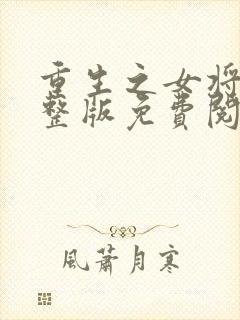 重生之女将
整版免費閱
風蕭月寒